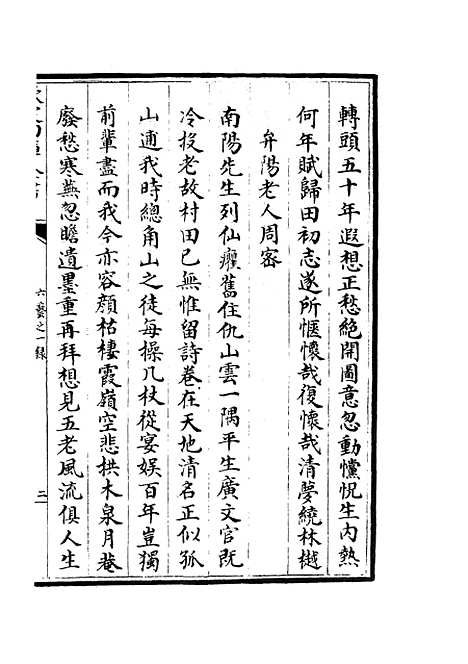 轉頭五十年遐想正愁絶開圖意忽動懷怳生内熱
何年賦歸田初志遂所愜懷哉復懷哉清夢繞林樾
弁陽老人周密
南陽先生列仙癯舊住仇山雲一隅平生廣文官既
冷投老故村田已無惟留詩卷在天地清名正似孤
山逋我時總角山之徒每操几杖從宴娱百年豈獨
前輩盡而我今亦容顔枯棲霞嶺空悲拱木泉月菴
廢愁寒蕪忽瞻遺墨重再拜想見五老風流俱人生
六藝之一録
二